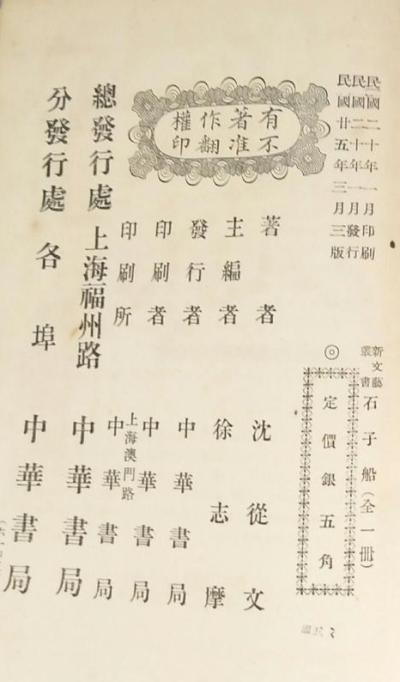 民國二十年一月印刷
民國二十年一月發行
民國廿五年三月三版
新文藝叢書
石子船(全一冊)
◎定價銀五角
有著作權
不准翻印
著者 沈從文
主編者 徐志摩
發行者 中華書局
印刷者 中華書局
印刷所 上海澳門路 中華書局
總發行處 上海福州路 中華書局
分發行處 各埠 中華書局